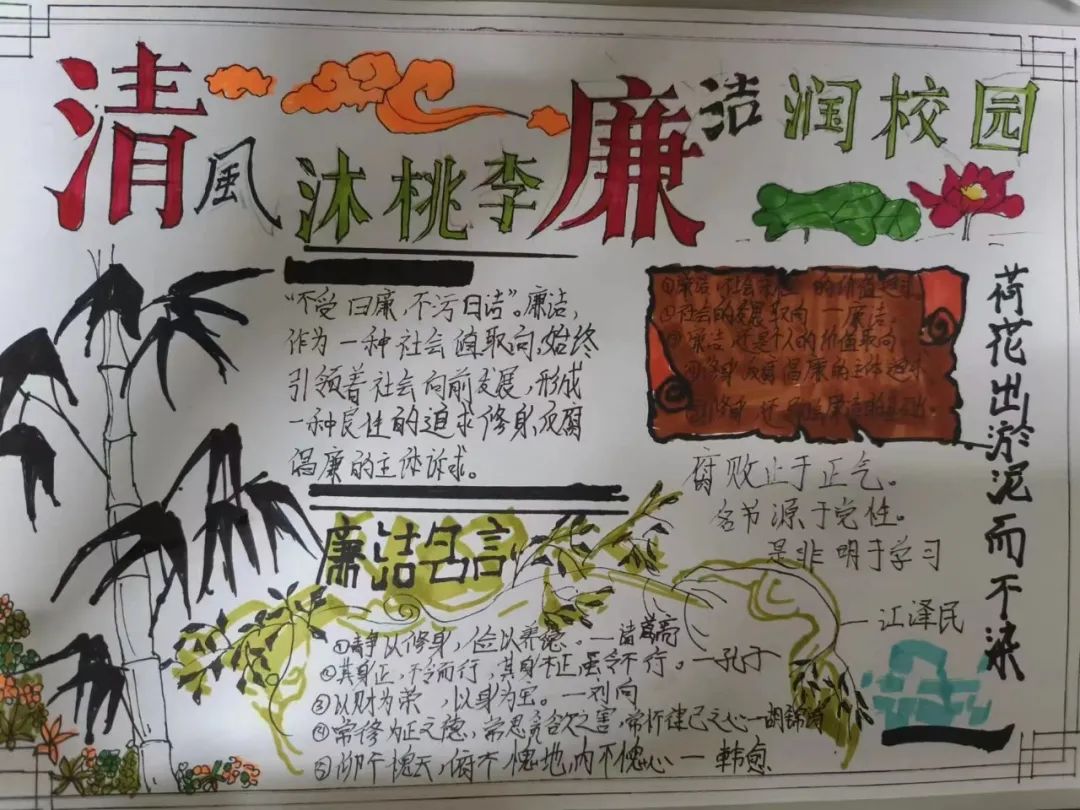 清風沐桃李廉洁润校园
“不受曰廉,不污曰洁”。廉洁,
作为一种社会值取向,始终
引领着社会向前发展,形成
一种良性的追求修身反腐
倡廉的主体诉求。
①廉洁 社会 的价值追求
②社会的发展取向 一廉洁
③廉洁还是个人的价值取向
④修身反腐倡廉的主体追求
腐败止于正气。
名节源于党性。
是非明于学习
—江泽民
荷花出淤泥而不染
廉洁名言
①静以修身,俭以养德。—诸葛亮
②其身正,不令而行,其身不正,虽令不行。—孔子
③以财为荣,以身为 。—刘向
④常修为正之德,常思贪欲之害,常怀律己之心—胡锦涛
⑤仰不愧天,俯不愧地,内不愧心—韩愈